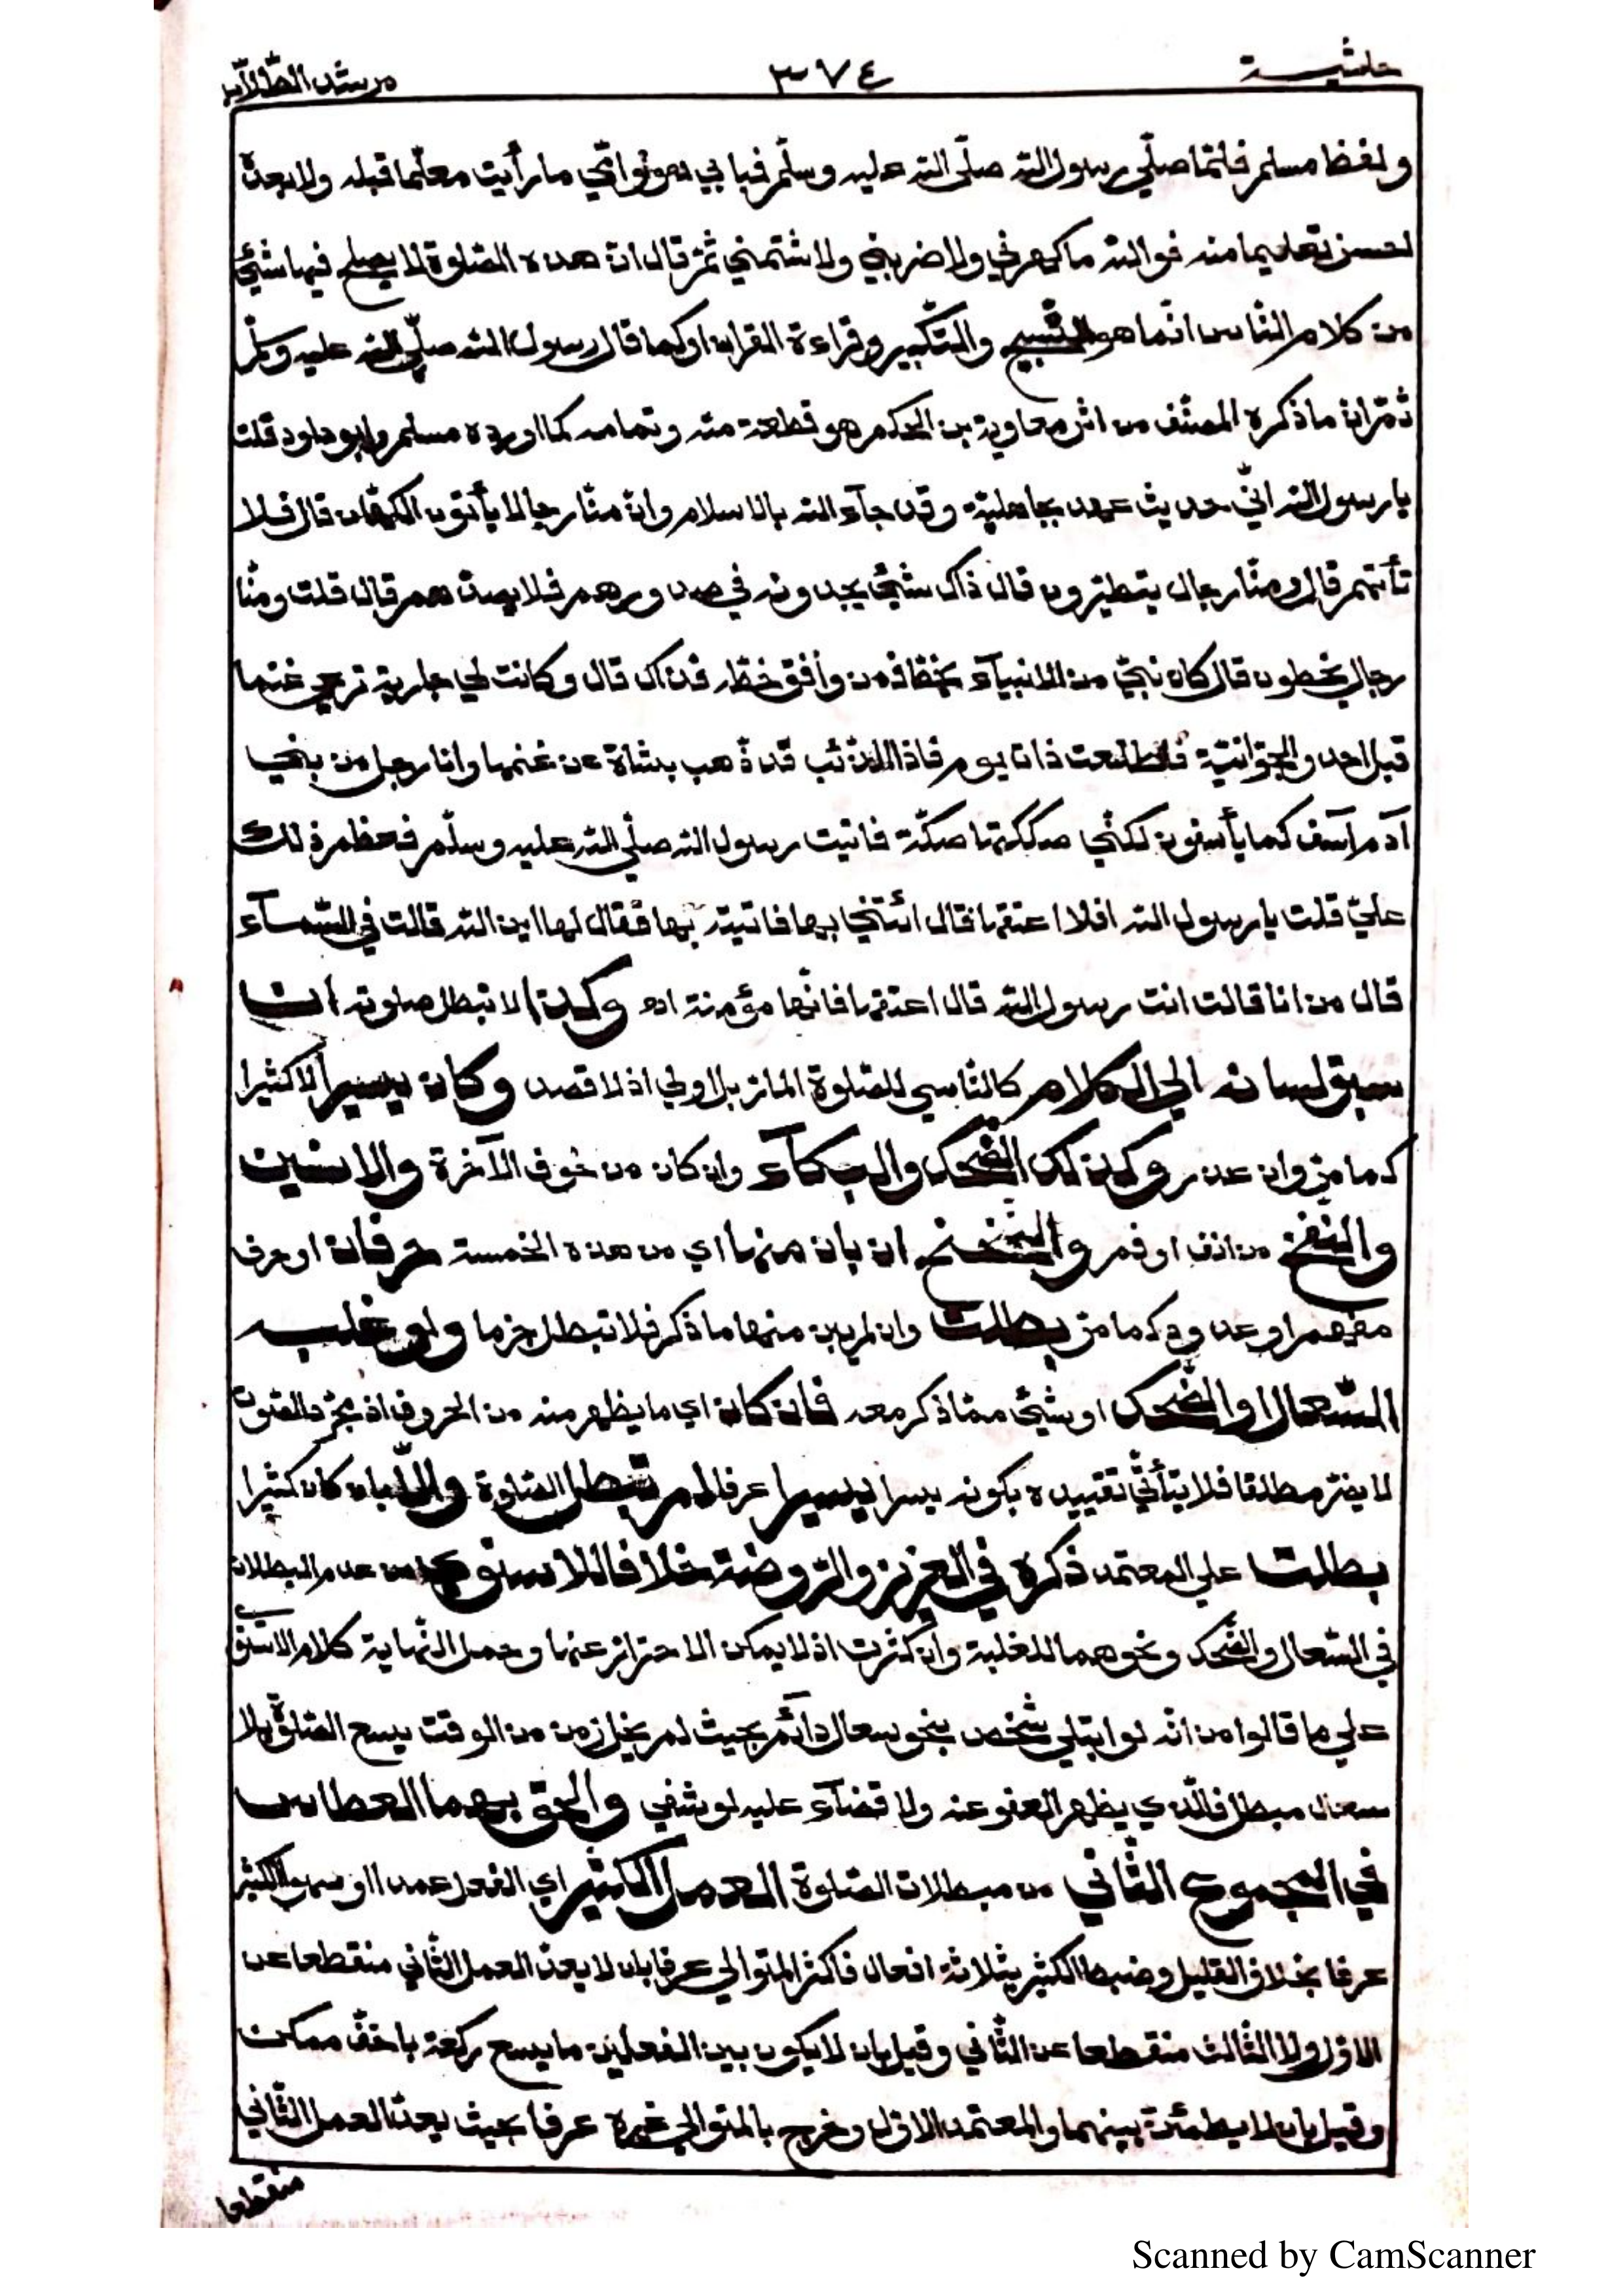 حاشية
٣٧٤
مرشد الطّلّاب
ولفظ مسلم فلمّا صلّي رسول الله صلّى الله عليه وسلّم فبابي هو وامّي ما رأيت معلّما قبله ولا بعدهٗ
احسن تعليما منه فوالله ما كهرني ولا ضربني ولا شتمني ثمّ قال انّ هذه الصّلوة لا يصلح فيها شئ
من كلام النّاس انّما هو التّسبيح والتّكبير وقراءة القران او كما قال رسول الله صلّي الله عليه وسلّم
ثمّ انّ ما ذكره المصنّف من اثر معاوية بن الحكم هو قطعة منه وتمامه كما اورده مسلم وابو داود قلت
يا رسول الله انّي حديث عهد بجاهليّة وقد جآء الله بالاسلام وانّ منّا رجالا يأتون الكهّان قال فلا
تأتهم قال ومنّا رجال يتطيّرون قال ذاك شئ يجدونه في صدورهم فلا يصدّهم قال قلت ومنّا
رجال يخطون قال كان نبيّ من الانبيآء يخطّ فمن وافق خطّه فذاك قال وكانت لي جارية ترعي غنما
قبل احد والجوّانيّة فاطّلعت ذات يوم فاذا الذّئب قد ذهب بشاة عن غنمها وانا رجل من بني
آدم آسف كما يأسفون لكنّي صككتها صكّة فاتيت رسول الله صلّي الله عليه وسلّم فعظم ذلك
عليّ قلت يا رسول الله افلا اعتقها قال ائتني بها فاتيته بها فقال لها اين الله قالت في السّمآء
قال من انا قالت انت رسول الله قال اعتقها فانّها مؤمنة اه وكذا لا تبطل صلوته ان
سبق لسانه الي الكلام كالنّاسي للصّلوة المارّ بل اولي اذ لا قصد وكان يسيرا لا كثيرا
كما مرّ وان عذر وكذلك الضّحك والبكآء وان كان من خوف الآخرة والانين
والنّفخ من انف او فم والتّنحنح ان بان منها اي من هذه الخمسة حرفان او حرف
مفهم او ممدود كما مرّ بطلت وان لم يبن منها ما ذكر فلا تبطل جزما ولو غلب
السّعال او الضّحك او شئ ممّا ذكر معه فان كان اي ما يظهر منه من الحروف اذ مجرّد الصّوت
لا يضرّ مطلقا فلا يتأتّي تقييده بكونه يسرا يسيرا عرفا لم تبطل الصّلوة والّا بان كان كثيرا
بطلت علي المعتمد ذكره في العزيز والرّوضة خلافا للاسنوي من عدم البطلان
في السّعال والضّحك ونحوهما للغلبة وان كثرت اذ لا يمكن الاحتراز عنها وحمل النّهاية كلام الاسنوي
علي ما قالوا من انّه لو ابتلي شخص بنحو سعال دآئم بحيث لم يخل زمن من الوقت يسع الصّلوة بلا
سعال مبطل فالّذي يظهر العفو عنه ولا قضآء عليه لو شفي والحق بهما العطاس
في المجموع الثّاني من مبطلات الصّلوة العمل الكثير اي الفعل عمدا او سهوا الكثير
عرفا بخلاف القليل وضبط الكثير بثلاثة افعال فاكثر المتوالي عرفا بان لا يعدّ العمل الثّاني منقطعا عن
الاوّل ولا الثّالث منقطعا عن الثّاني وقيل بان لا يكون بين الفعلين ما يسع ركعة باخفّ ممكن
وقيل بان لا يطمئنّ بينهما والمعتمد الاوّل وخرج بالمتوالي غيره عرفا بحيث يعدّ العمل الثّاني
منقطعا
Scanned by CamScanner